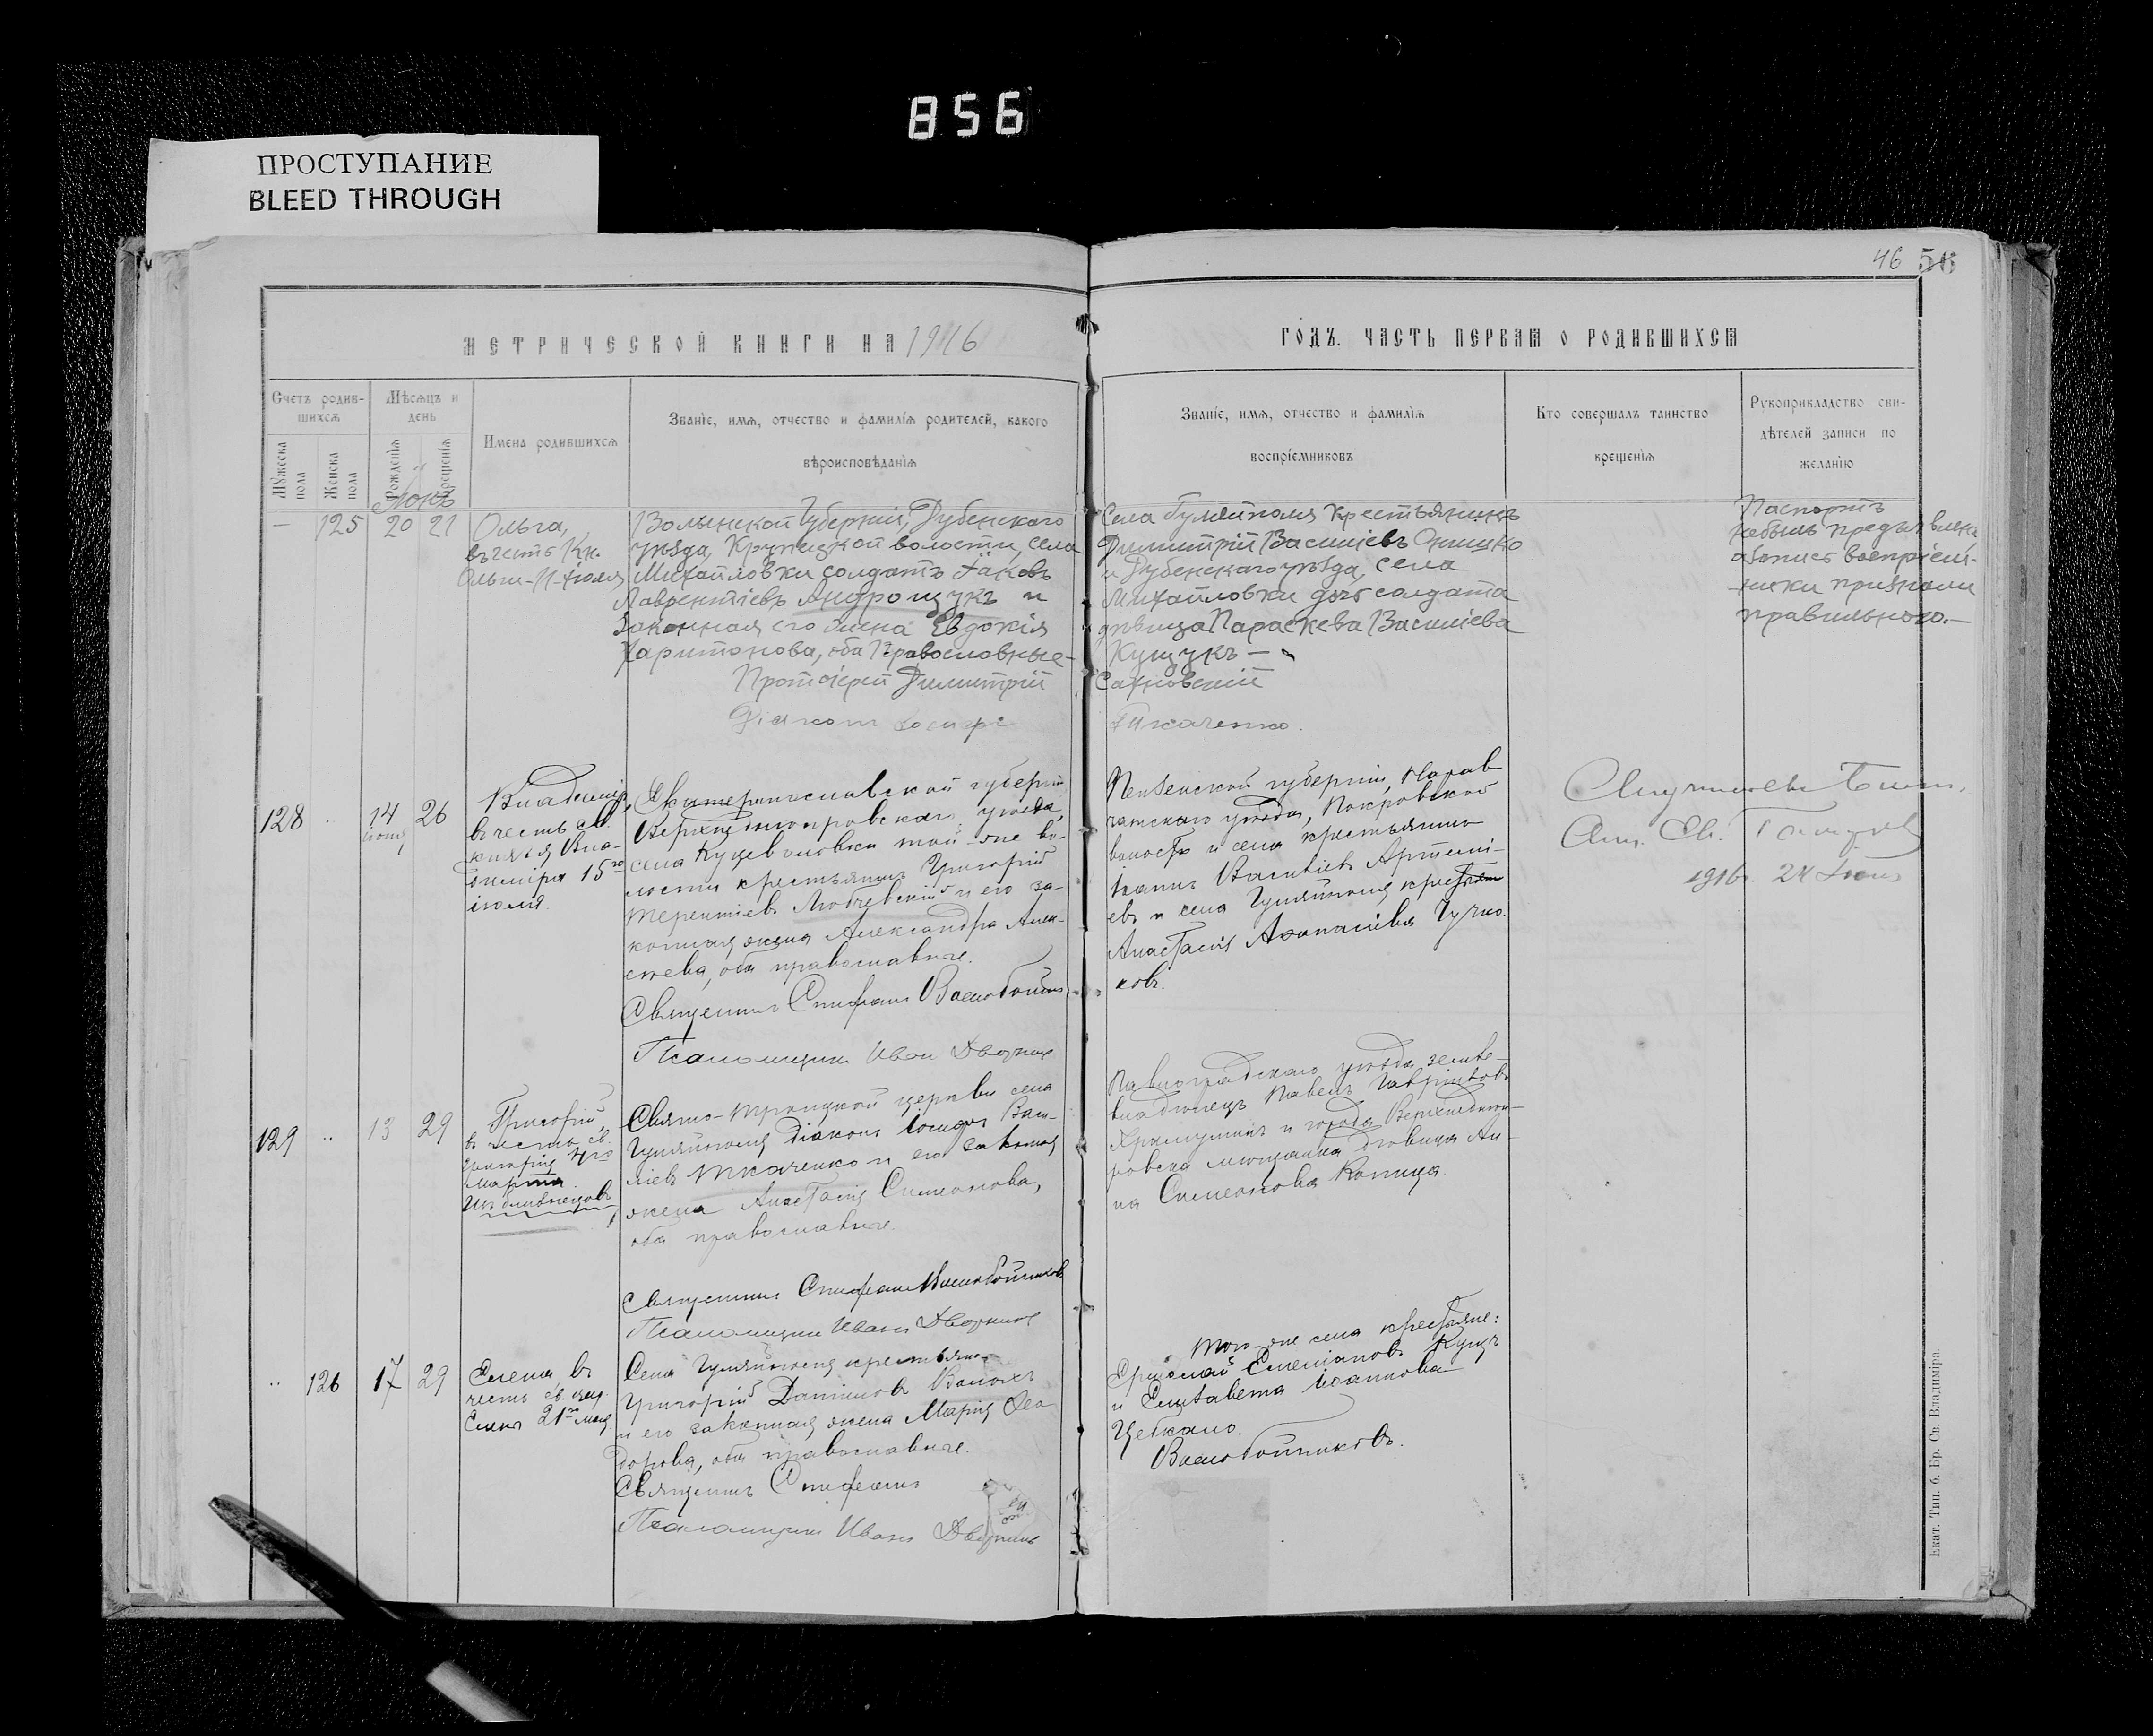 856
ПРОСТУПАНИЕ
BLEED THROUGH
46 56
МЕТРИЧЕСКОЙ КНИГИ НА 1916
ГОДЪ. ЧАСТЬ ПЕРВАЯ О РОДИВШИХСЯ
Счетъ родив-
шихся
Мужеска пола
Женска пола
Мѣсяцъ и
день
Рожденія
Крещенія
Имена родившихся
Званіе, имя, отчество и фамилія родителей, какого
вѣроисповѣданія
Званіе, имя, отчество и фамилія
воспріемниковъ
Кто совершалъ таинство
крещенія
Рукоприкладство сви-
дѣтелей записи по
желанію
— 125 20 21
Ольга,
въ честь Кн.
Ольги-11-Іюля
Волынской Губерніи, Дубенскаго
уѣзда, Крупецкой волости, села
Михайловки солдатъ Іаковъ
Лаврентіевъ Андрощукъ и
законная его жена Евдокія
Харитонова, оба Православные-
Протоіерей Димитрій
Діаконъ
Села Гуляйполя Крестьянинъ
Димитрій Василіевъ Онишко
и Дубенскаго уѣзда, села
Михайловки дочь солдата
дѣвица Параскева Василіева
Кущукъ —
Сахновскій
Ткаченко.
Паспортъ
небылъ предъявленъ
а запись воспріем-
ники признали
правильною.—
128 14 26
Владиміръ
въ честь св.
князя Вла-
диміра 15го
іюля.
Екатеринославской губерніи
Верхнеднѣпровскаго уѣзда,
села Куцеволовки той-же во-
лости крестьянинъ Григорій
Терентіевъ и его за-
конная жена Александра Алек-
сѣева, оба православные.
Священникъ Стефанъ
Псаломщикъ Иванъ Дворник
Пензенской губерніи, Наров-
чатскаго уѣзда, Покровской
волости и села крестьянинъ
Іоаннъ Василіевъ Артемі-
евъ и села Гуляйполя
Анастасія Аѳанасіева Гучко-
ковъ.
1916г. 24
129 " 13 29
Григорій
въ честь св.
Григорія
марта.
Изъ близнецовъ
Свято-Троицкой церкви села
Гуляйполя Діаконъ Васи-
ліевъ Ткаченко и его законная
жена Анастасія Симеонова,
оба православные.
Священникъ Стефанъ Маслобойниковъ
Псаломщикъ Иванъ Дворник
Павлоградскаго уѣзда земле-
владѣлецъ Павелъ Гавріиловъ
и города Верхнеднѣп-
ровска мѣщанка дѣвица Ан-
на Симеонова Копица.
" 126 17 29
Елена въ
честь св. цар.
Елены 21го мая
Села Гуляйполя крестьянинъ
Григорій Даніиловъ Волохъ
и его законная жена Марія Ѳео-
дорова, оба православные.
Священникъ Стефанъ
Псаломщикъ Иванъ Дворник
Того-же села крестьяне:
Стефановъ Куцъ
и Елисавета Іоаннова
Цебкало.
Маслобойниковъ.
Екат. Тип. б. Бр. Св. Владиміра.